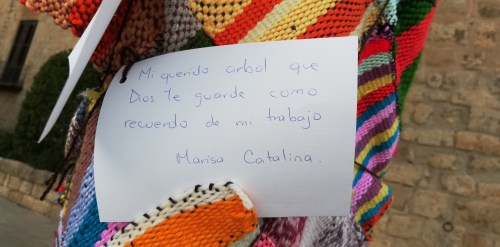 Mi querido arbol que
Dios te guarde como
recuerdo de mi trabajo
Marisa Catalina.